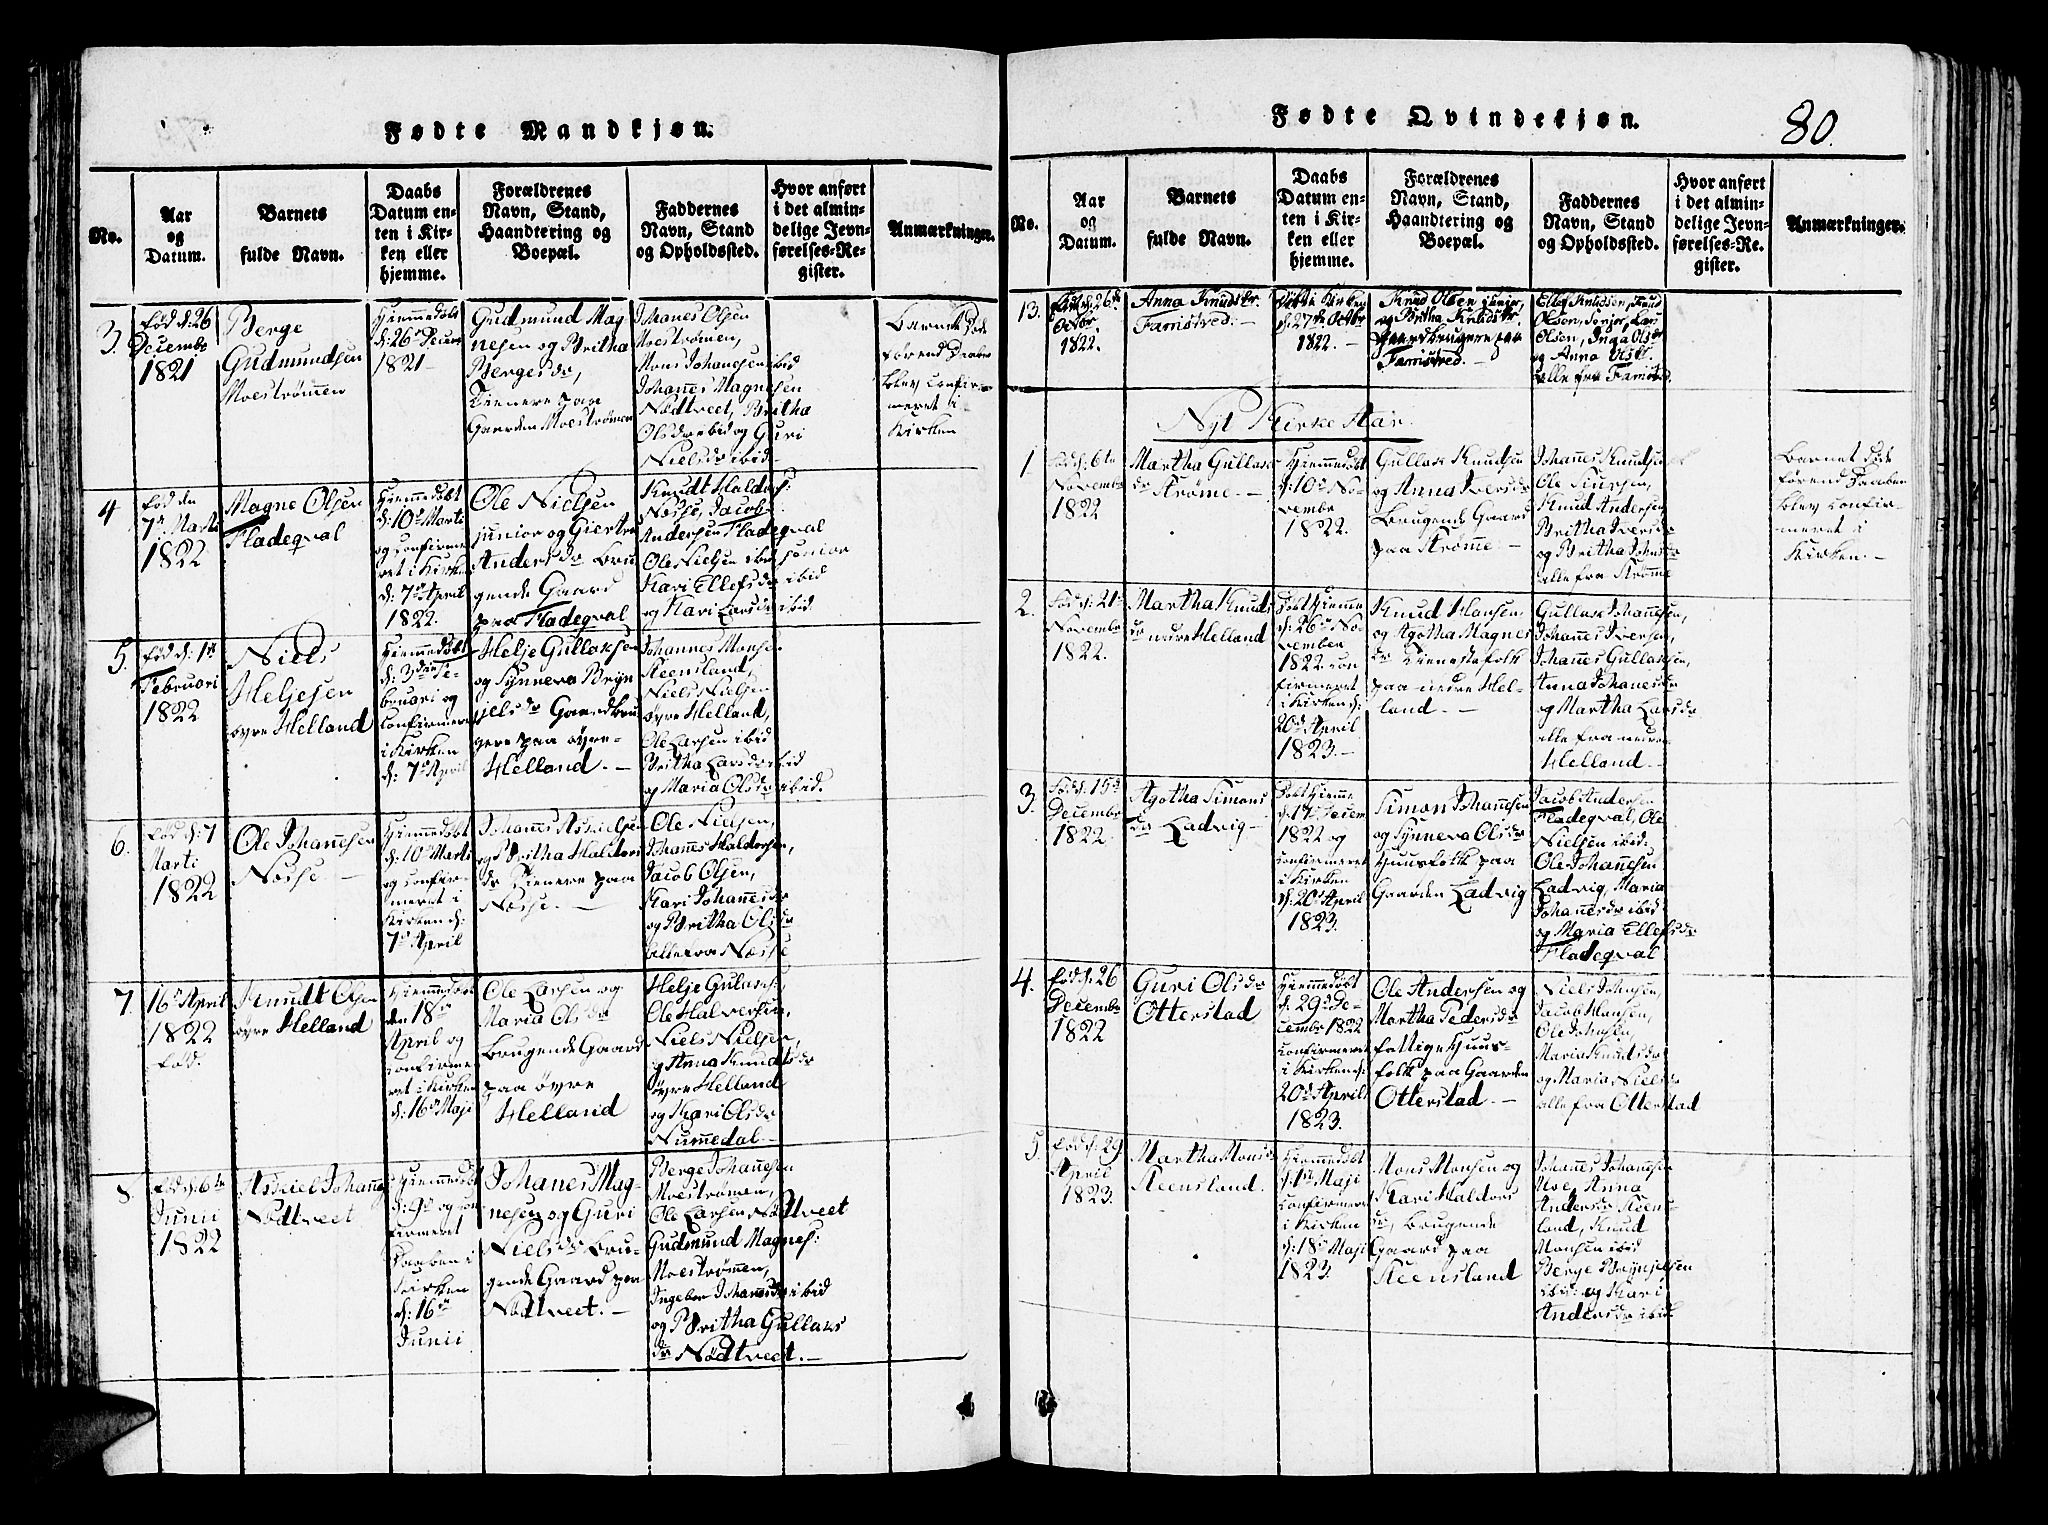 Fødte Mandkjøn.
No.
Aar
og
Datum.
Barnets
fulde Navn.
Daabs
Datum en-
ten i Kir-
ken eller
hjemme.
Forældrenes
Navn, Stand,
Haandtering og
Boepæl.
Faddernes
Navn, Stand
og Opholdssted.
Hvor anført
i det almin-
delige Jevn-
førelses-Re-
gister.
Anmærkninger.
3.
fød d: 26
Decembr
1821
Berge
Gudmundsen
Moestrømmen
Hiemmedøbt
d: 26de Decem
1821
Gudmund Mag-
nesen og Britha
Bergesdr,
Tienere paa
Gaarden Moestrømen
Johanes Olsen
Moestrømen,
Mons Johannesen ibid
Johannes Magnesen
Nødtveet, Britha
Olsdr ibid og Guri
Nielsdr ibid
Barnet
førend Daaben
blev confir-
meret i
Kirken
4
fød den
7de Marti
1822
Magne Olsen
Fladeqval
Hiemmedøbt
d: 10de Marti
og confirme
ret i Kirken
d: 7de April
1822.
Ole Nielsen
junior og Giertru
Andersdr Bru
gende Gaard
paa Fladeqval
Knudt Haldors:
Nosse, Jacob
Andersen Fladeqval
Ole Nielsen ibid senior
Kari Ellefsdr ibid
og Kari Larsdr ibid
5.
fød d: 1te
Februari
1822
Niels
Heljesen
øvre Helland
Hiemmedøbt
d: 3die Fe-
bruari og
Confirmeret
i Kirken
d: 7de April
Helje Gullaksen
og Synneva Bryn
jelsdr Gaardbru
gere paa øvre-
Helland. -
Johannes Monsen
Steensland,
Niels Nielsen
øvre Helland,
Ole Larsen ibid
Britha Larsdr ibid
og Maria Olsdr ibid.
6.
fød d: 7
Marti
1822
Ole Johannesen
Nosse. -
Hiemmedøbt
d: 10de Marti
og confir-
meret i
Kirken d:
7de April
Johannes Askielsen
og Britha Haldors
dr Tienere paa
Nosse. -
Ole Nielsen,
Johannes Haldorsen,
Jacob Olsen,
Kari Johannesdr
og Britha Olsdr
alle fra Nosse
7.
16de April
1822
fød.
Knudt Olsen
øvre Helland
Hiemmedøbt
den 18de
April og
confirme
ret i Kirken
d: 16de Maji
Ole Larsen og
Maria Olsdr
Brugende Gaard
paa øvre
Helland
Helje Gulaks:
Ole Halversen,
Niels Nielsen,
og Anna Knudtsdr
øvre Helland
og Kari Olsdr
Nummedal. -
8.
fød d: 6te
Junii
1822
Askiel Johannes
Nødtveet
Hiemmedøbt
d: 9de og con
firmeret
Daaben i
Kirken
d: 16de
Junii
Johanes Mag-
nesen og Guri
Nielsdr Bru-
gende Gaard paa
Nødtveet. -
Berge Johannesen
Moestrømen,
Ole Larsen Nødtveet
Gudmund Magnes:
Moestrømen,
Ingebor Johannesdr ibid
og Britha Gullaks
dr Nødtveet. -
Fødte Qvindekjøn.
80.
No.
Aar
og
Datum.
Barnets
fulde Navn.
Daabs
Datum en-
ten i Kir-
ken eller
hjemme.
Forældrenes
Navn, Stand,
Haandtering og
Boepæl.
Faddernes
Navn, Stand
og Opholdssted.
Hvor anført
i det almin-
delige Jevn-
førelses-Re-
gister.
Anmærkninger.
13.
Fød d: 26de
Octbr
1822.
Anna Knudsdr.
Famistved. -
Døbt i Kirken
d: 27de Octbr
1822. -
Knud Olsen
og Britha Knudsdr.
Gaardbrugere paa
Famistved. -
Ellef Knudsen, Knud
Olsen, Lars
Olsen, Inga Olsdr
og Anna Olsdr.
alle fra Famistved.
Nyt Kirke Aar.
1
Fød d: 6te
Novembr
1822
Martha Gullaks
dr Strøme. -
Hiemmedøbt
d: 10de No-
vembr
1822.
Gullak Knudsen
og Anna Iversdr
Brugende Gaard
paa Strømme. -
Johannes Knudsen
Ole
Knud Andersen
Britha Iversdr
og Britha Johnsdr
alle fra Strømme
Barnet
førend Daaben
blev confir-
meret i
Kirken. -
2.
Fød d: 21de
Novembr
1822.
Martha Knuds
dr nedre Helland
Døbt Hiemme
d: 26de No-
vember
1822 con
firmeret
i Kirken d:
20de April
1823. -
Knud Hansen
og Agotha Magnes
dr Tienestefolk
paa nedre Hel-
land. -
Gullak Johannesen,
Johannes Iversen,
Johannes Gullaksen,
Anna Johanesdr
og Martha Larsdr
alle fra nedre
Helland. -
3.
Fød d: 15de
Decembr
1822.
Agotha Simons
dr Ladvig -
Døbt Hiemme
d: 17de Decem
1822 og
confirmeret
i Kirken
d: 20de April
1823.
Simon Johannesen
og Synneva Olsdr
Huusfolk paa
Gaarden Ladvig
Jacob Andersen
Fladeqval, Ole
Nielsen ibid:
Ole Johannesen
Ladvig, Maria
Johannesdr ibid
og Maria Ellefsdr
Fladeqval
4.
fød d: 26
Decembr
1822
Guri Olsdr
Otterstad
Hiemmedøbt
d: 29de De-
cembr 1822
confirmeret
i Kirken d:
20de April
1823.
Ole Andersen og
Martha Pedersdr
fattige Huus-
folk paa Gaarden
Otterstad. -
Niels Johnsen,
Jacob Hansen,
Ole Johnsen,
Maria Knudsdr
og Maria Nielsdr
alle fra Otterstad
5.
fød d: 29
April
1823.
Martha Monsdr
Steensland.
Hiemmedøbt
d: 1te Maji
Confirmeret
i Kirken
d: 18de Maji
1823.
Mons Monsen og
Kari Haldors
dr, Brugende
Gaard paa
Steensland
Johannes Johannesen
Anna
Andersdr Steens-
land, Knud
Monsen ibid
Berge Brynjelsen
ibid: og Kari
Andersdr ibid